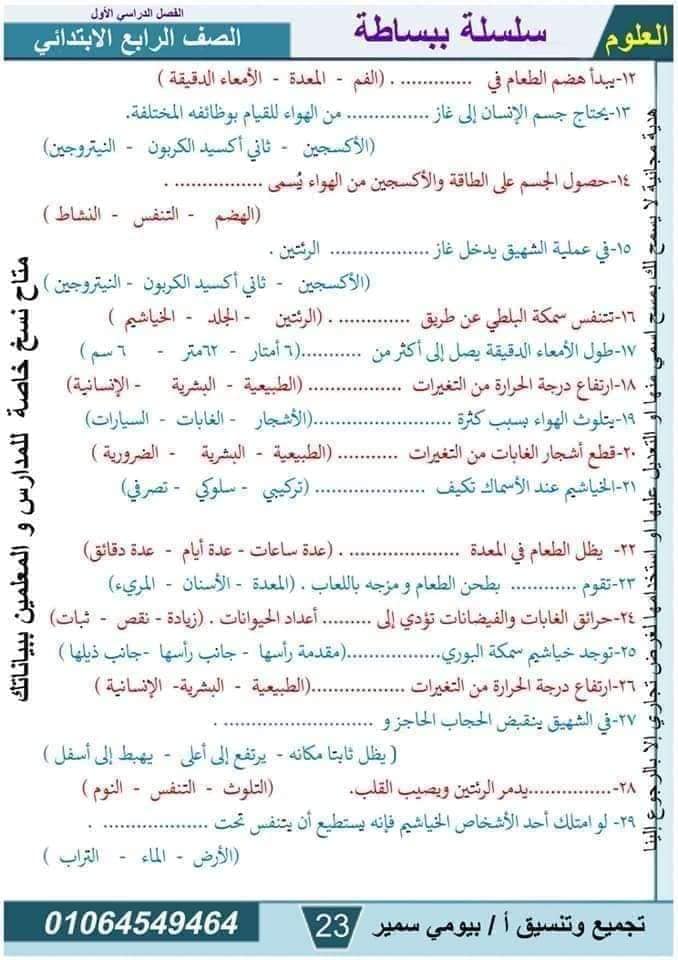 الفصل الدراسي الأول
العلوم
سلسلة ببساطة
الصف الرابع الابتدائي
١٢-يبدأ هضم الطعام في ............. . (الفم - المعدة - الأمعاء الدقيقة )
١٣-يحتاج جسم الإنسان إلى غاز ............... من الهواء للقيام بوظائفه المختلفة.
(الأكسجين - ثاني أكسيد الكربون - النيتروجين)
١٤-حصول الجسم على الطاقة والأكسجين من الهواء يُسمى ................ .
(الهضم - التنفس - النشاط )
١٥-في عملية الشهيق يدخل غاز .................. الرئتين .
(الأكسجين - ثاني أكسيد الكربون - النيتروجين )
١٦-تتنفس سمكة البلطي عن طريق ............. . (الرئتين - الجلد - الخياشيم )
١٧-طول الأمعاء الدقيقة يصل إلى أكثر من ...........(٦ أمتار - ٦٢متر - ٦ سم )
١٨-ارتفاع درجة الحرارة من التغيرات ................. (الطبيعية - البشرية - الإنسانية)
١٩-يتلوث الهواء بسبب كثرة .........................(الأشجار - الغابات - السيارات)
٢٠-قطع أشجار الغابات من التغيرات ........... (الطبيعية - البشرية - الضرورية )
٢١-الخياشيم عند الأسماك تكيف .................... (تركيبي - سلوكي - تصرفي)
٢٢- يظل الطعام في المعدة .................... . (عدة ساعات - عدة أيام - عدة دقائق)
٢٣-تقوم ............ بطحن الطعام و مزجه باللعاب . (المعدة - الأسنان - المريء)
٢٤-حرائق الغابات والفيضانات تؤدي إلى ......... أعداد الحيوانات . (زيادة - نقص - ثبات)
٢٥-توجد خياشيم سمكة البوري.................(مقدمة رأسها - جانب رأسها -جانب ذيلها )
٢٦-ارتفاع درجة الحرارة من التغيرات .................(الطبيعية - البشرية- الإنسانية )
٢٧-في الشهيق ينقبض الحجاب الحاجز و .......................... .
( يظل ثابتا مكانه - يرتفع إلى أعلى - يهبط إلى أسفل )
٢٨-...............يدمر الرئتين ويصيب القلب. (التلوث - التنفس - النوم )
٢٩- لو امتلك أحد الأشخاص الخياشيم فإنه يستطيع أن يتنفس تحت .................. .
(الأرض - الماء - التراب )
متاح نسخ خاصة للمدارس و المعلمين ببياناتك
هدية مجانية لا يسمح لك بمسح اسمي منها او التعديل عليها او استخدامها لغرض تجاري إلا بالرجوع إلينا
تجميع وتنسيق أ / بيومي سمير
23
01064549464